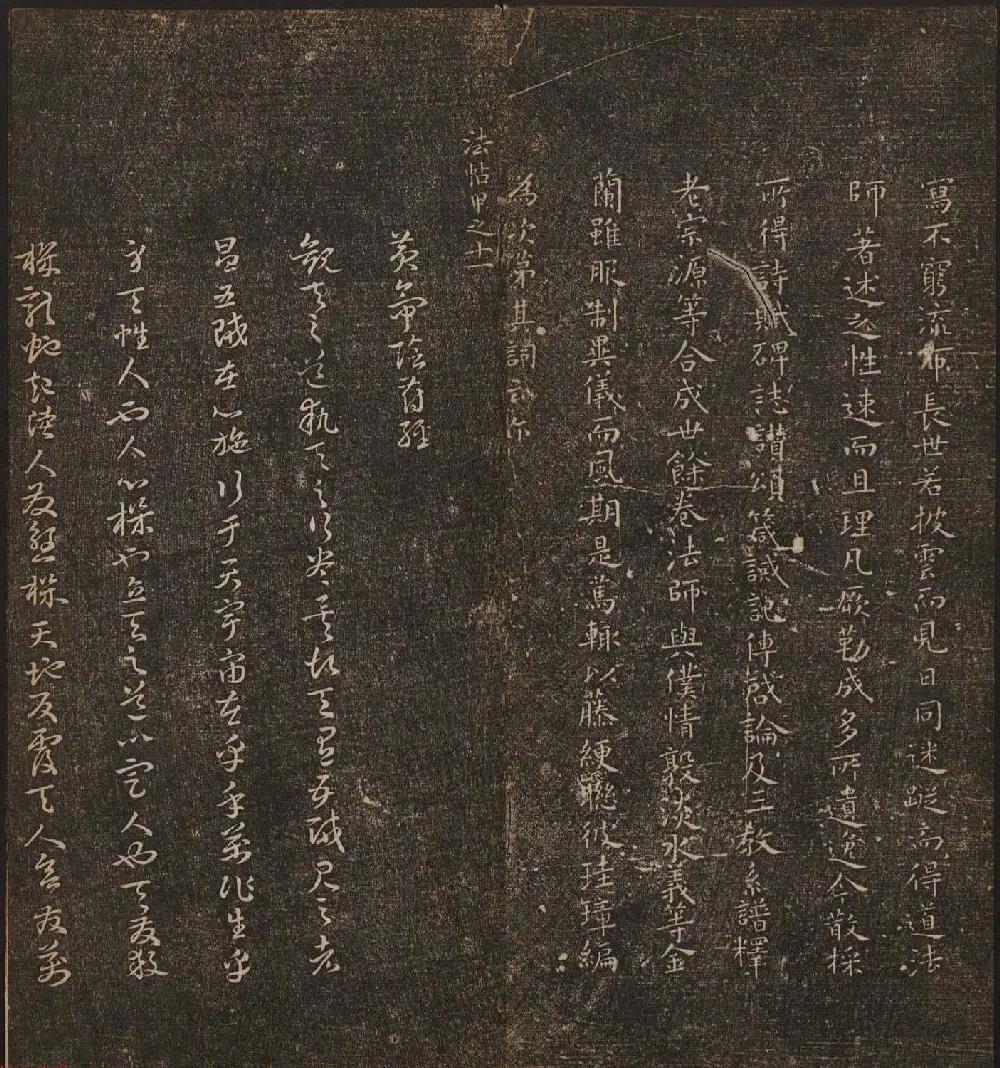 寫不窮流布長世若披雲而見日同迷蹤而得道法
師著述之性速而且理凡厥勒成多所遺逸今散採
所得詩賦碑誌讃頌箴誡記傳啟論及三教系譜釋
老宗源等合成卅餘卷法師與僕情敦淡水義等金
蘭雖服制異儀而風期是篤輒以藤緶聯彼珪璋編
為次第其詞云尔
法帖甲之十一
黃帝陰符經
觀天之道執天之行盡矣故天有五賊見之者
昌五賊在心施行于天宇宙在乎手萬化生乎
身天性人也人心機也立天之道以定人也天發殺
機龍蛇起陸人發殺機天地反覆天人合發萬